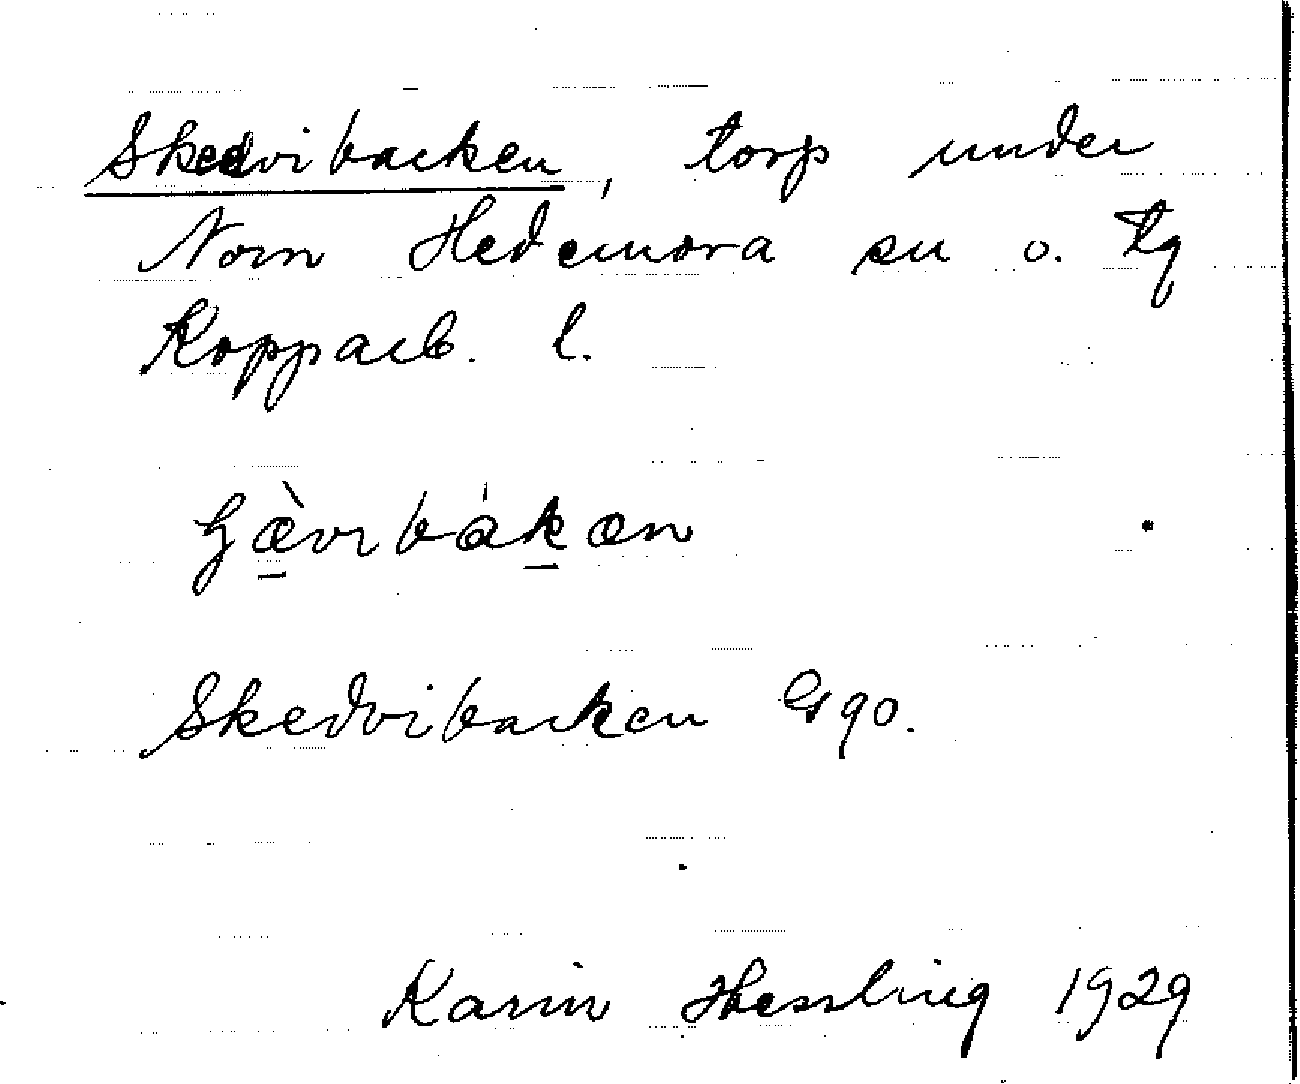 Skedvibacken, torp under
Norn Hedemora sn o. tg
Kopparb. l.
Skedvibacken G 90.
Karin Hessling 1929